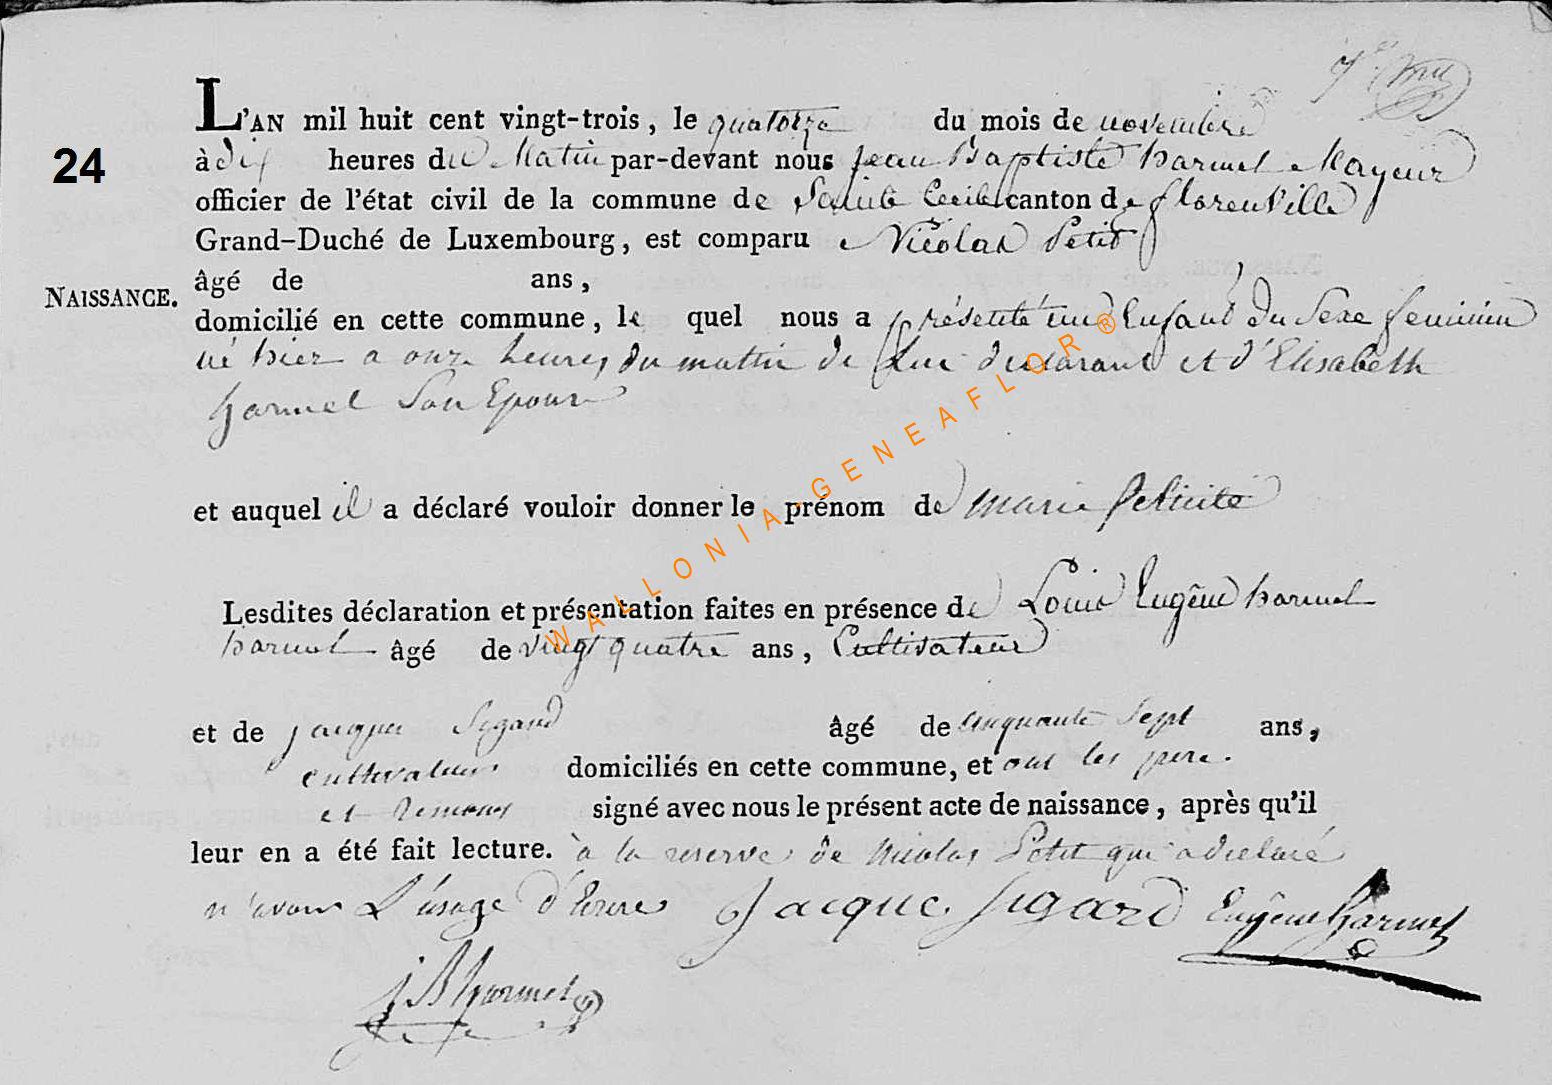 24
L'AN mil huit cent vingt-trois, le quatorze du mois de novembre
à dix heures du Matin par-devant nous Jean Baptiste harmel Mayeur
officier de l'état civil de la commune de Sainte Cecile canton de florenville
Grand-Duché de Luxembourg, est comparu Nicolas Petit
NAISSANCE.
âgé de ans,
domicilié en cette commune, le quel nous a présenté un Enfant du Sexe feminin
né hier a onze heures du mattin de Lui declarant et d'Elisabeth
harmel Son Epouse
et auquel il a déclaré vouloir donner le prénom de marie felicité
Lesdites déclaration et présentation faites en présence de Louis Eugêne harmel
harmel âgé de vingt quatre ans, Cultivateur
et de jacque Sigard âgé de cinquante Sept ans,
cultivateur domiciliés en cette commune, et ont les pere
et temoins signé avec nous le présent acte de naissance, après qu'il
leur en a été fait lecture. à la reserve de Nicolas Petit qui a declaré
n'avoir L'usage d'Ecrire Jacque Sigard Eugêne harmel
J B harmel
WALLONIA-GENEAFLOR®